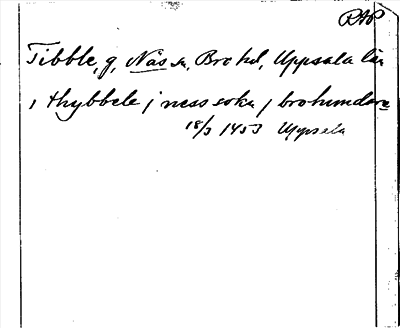 RAP
Tibble, g, Näs sn, Bro hd, Uppsala län
i thybbele j ness sokn j brohundare
18/3 1453 Uppsala